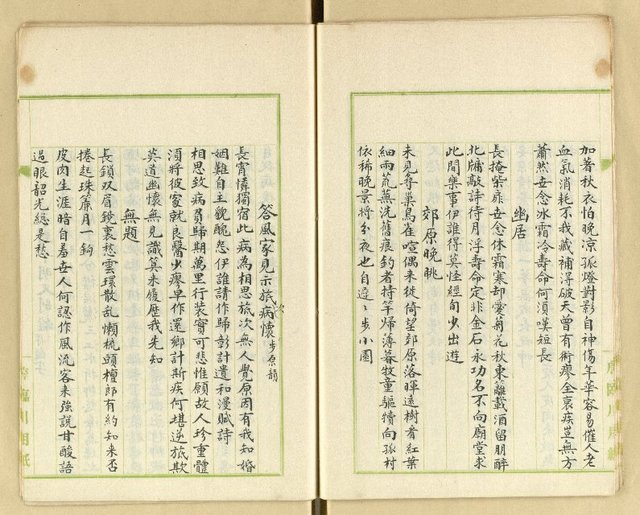 加著秋衣怕晚涼孤燈對影自神傷年華容易催人老
血氣消耗不我藏補淂破天曾有術瘳全衰疾豈無方
蕭然世念冰霜冷壽命何須嘆短長
幽居
長掩柴扉世念休霜寒却愛菊花秋東籬載酒留朋醉
北牖敲詩待月浮壽命定非金石永功名不向廟堂求
此間樂事伊誰得莫怪經旬少出遊
郊原晚眺
未見尋巢鳥雀喧偶來徙倚望郊原落暉遠樹看紅葉
細雨荒蕪洗舊痕釣者持竿歸薄暮牧童驅犢向孤村
依稀晚景將分夜也自遲遲步小園
答風家見示旅次病懷步原韻
長宵憐獨宿此病為相思旅次無人覺原因有我知婚
姻難自主貌醜怨伊誰請作歸彭計遣和漫賦詩
相思致病肩歸期萬里行裝實可悲惟願故人珍重體
須將彼家就良醫少瘳早作還鄉計斯疾何堪逆旅欺
莫道幽懷無見識算來履歷我先知
無題
長鎖双眉鏡裏愁雲環散乱懶梳頭檀郎有約知来否
捲起珠簾月一鈎
皮肉生涯暗自羞世人何認作風流客来強説甘酸語
過眼韶光總是愁